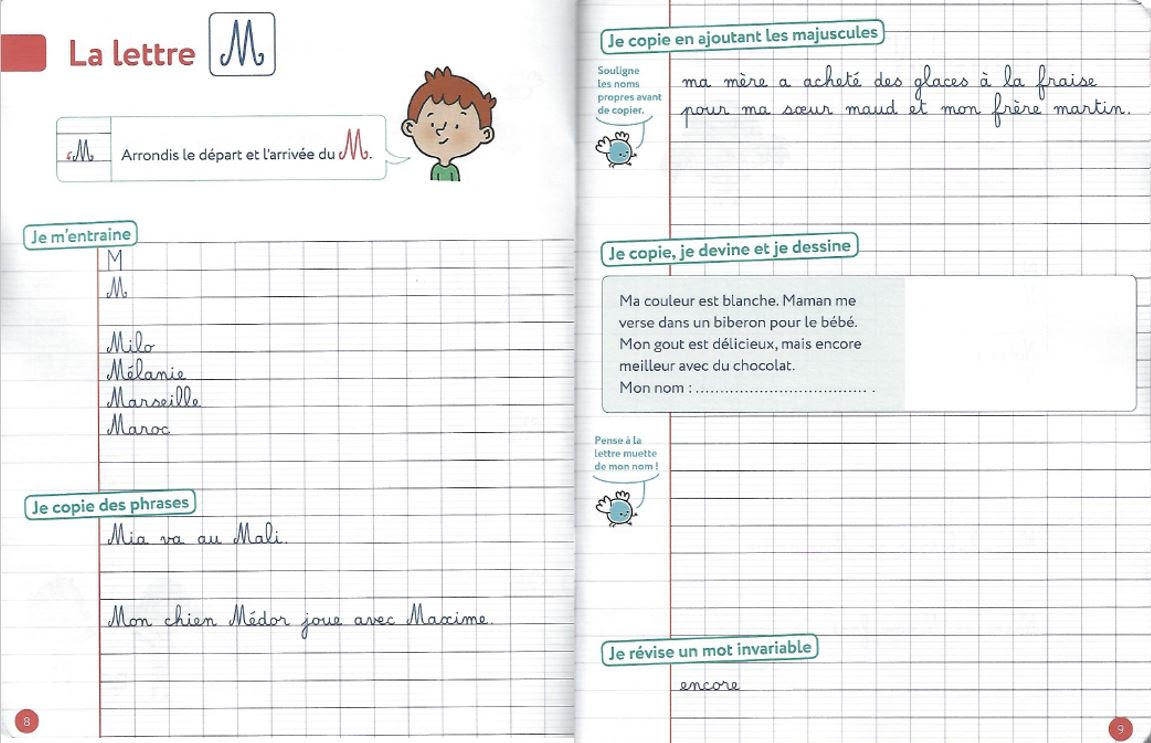 La lettre M
M Arrondis le départ et l'arrivée du M.
Je m'entraine
M
M
Milo
Mélanie
Marseille
Maroc
Je copie des phrases
Mia va au Mali.
Mon chien Médor joue avec Maxime.
8
Je copie en ajoutant les majuscules
Souligne
les noms
propres avant
de copier.
ma mère a acheté des glaces à la fraise
pour ma sœur maud et mon frère martin.
Je copie, je devine et je dessine
Ma couleur est blanche. Maman me
verse dans un biberon pour le bébé.
Mon gout est délicieux, mais encore
meilleur avec du chocolat.
Mon nom : .................................... .
Pense à la
lettre muette
de mon nom !
Je révise un mot invariable
encore
9